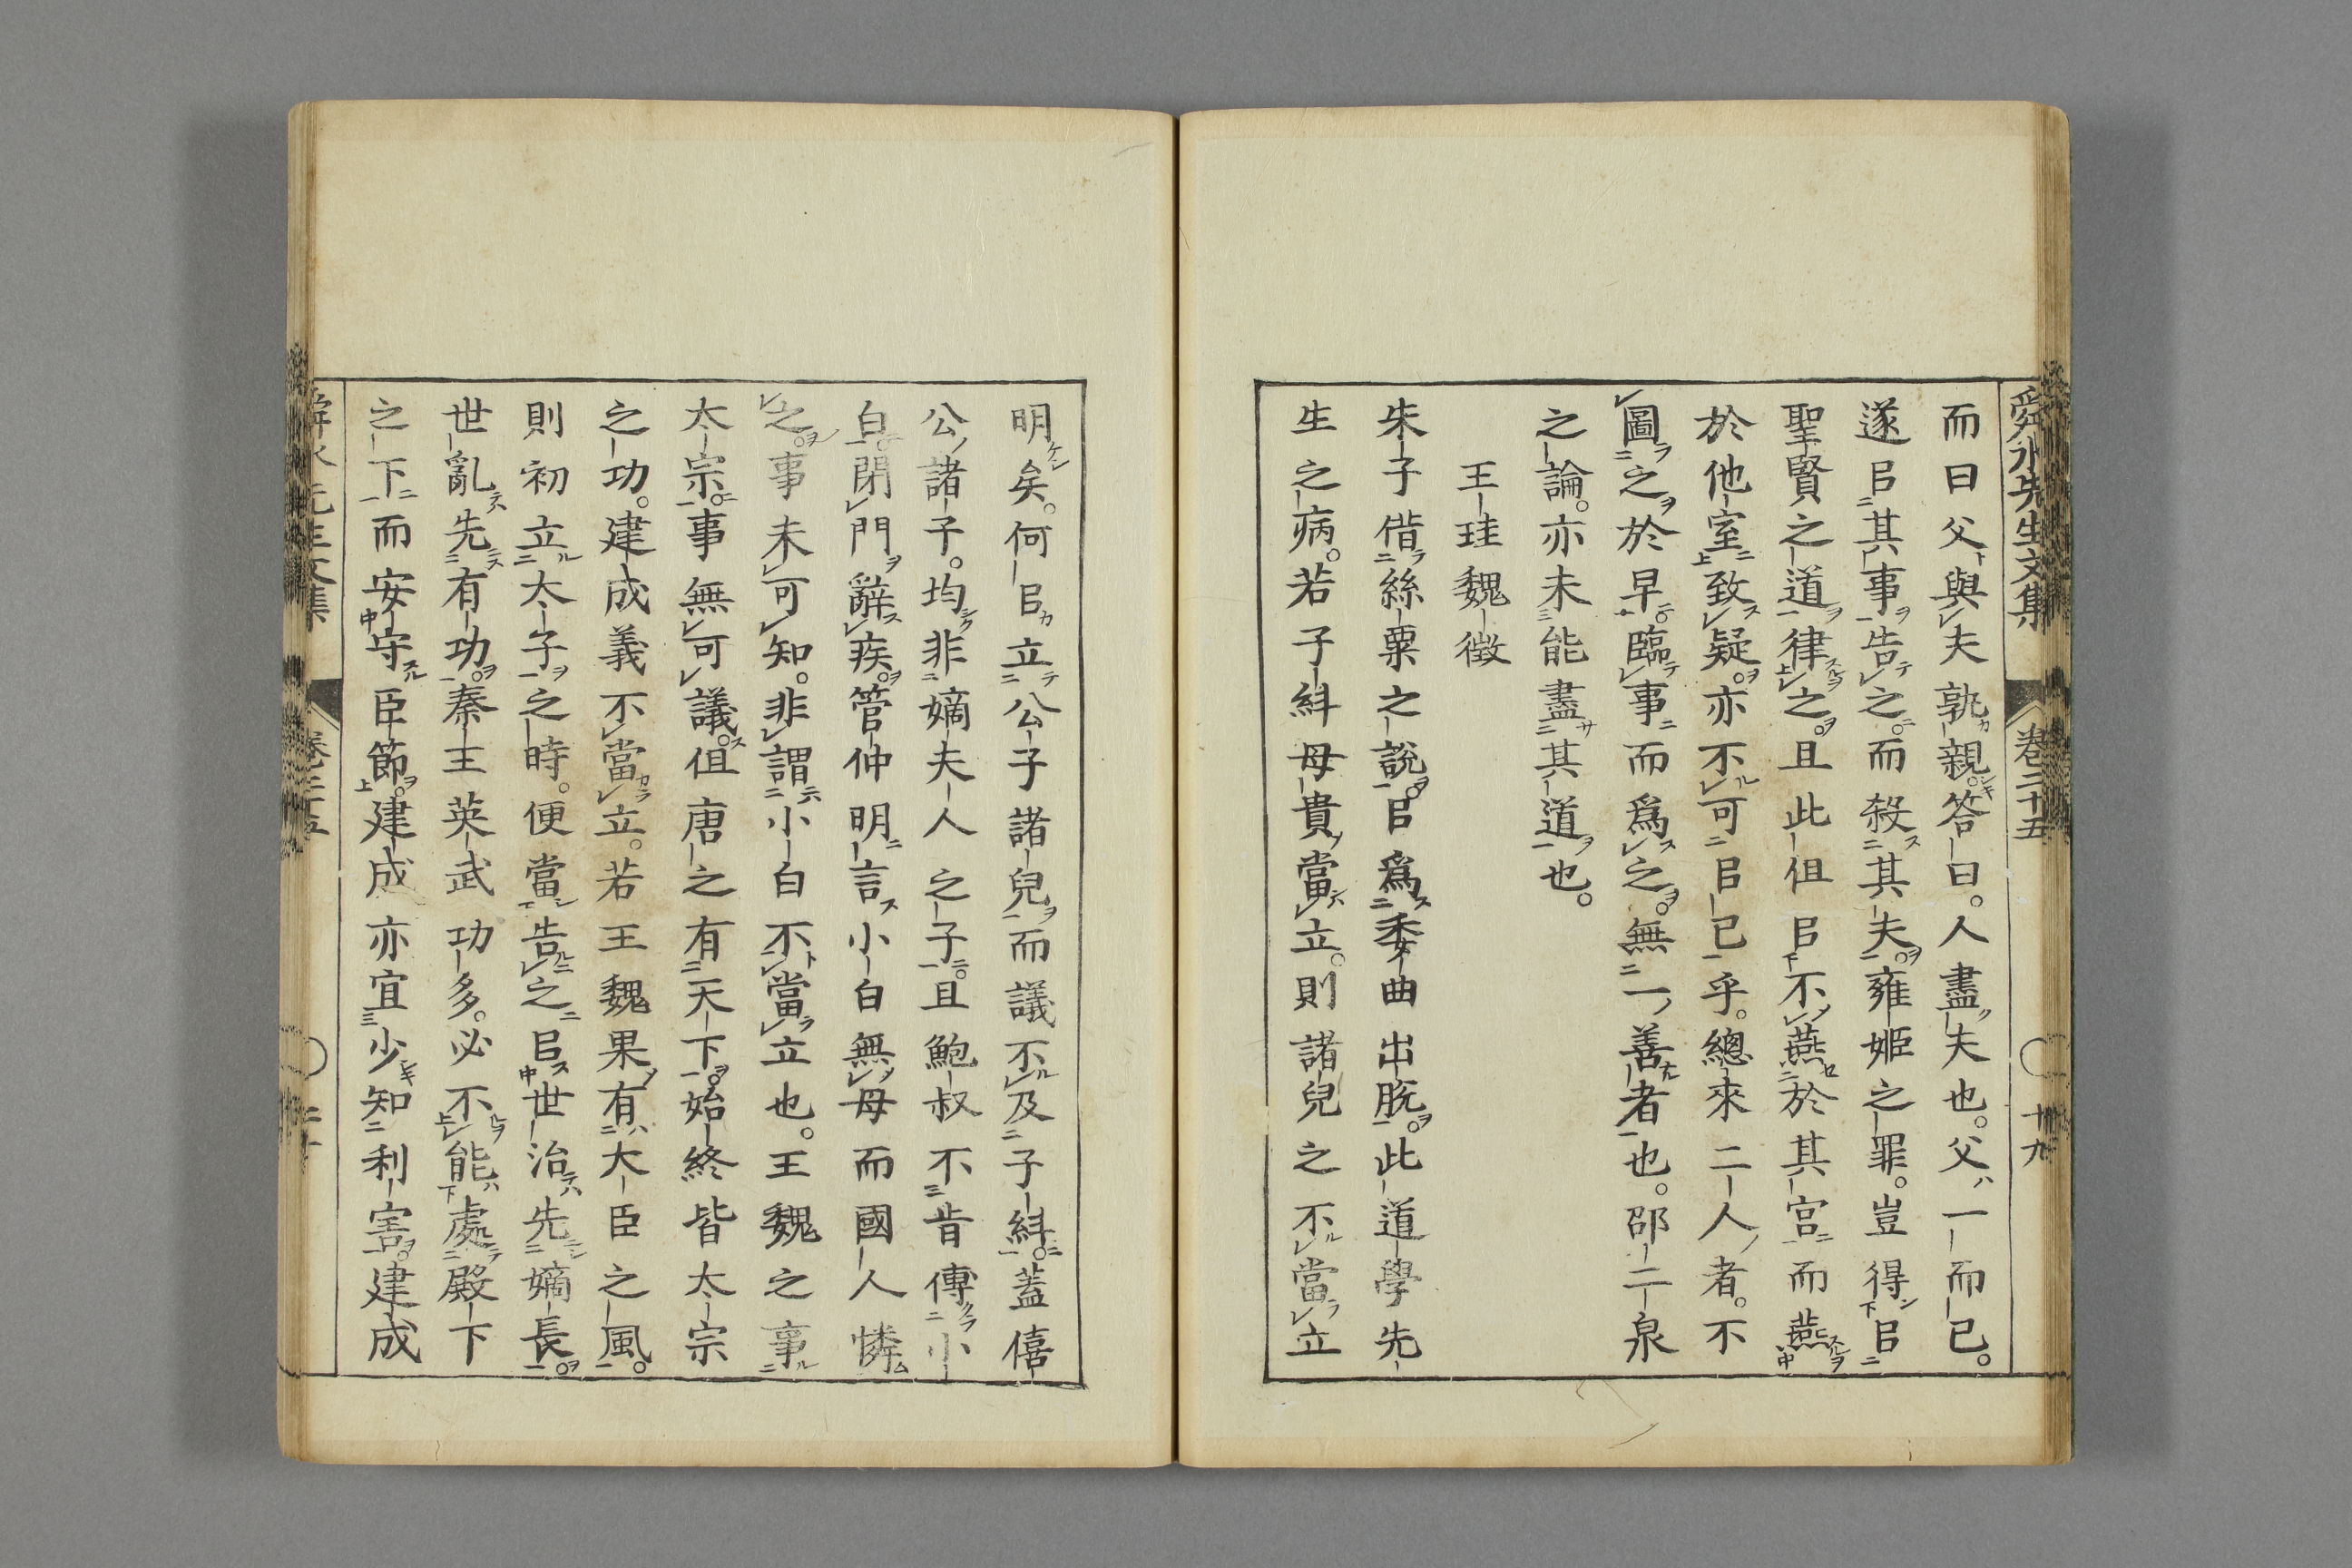 舜水先生文集 卷二十五 十九
而曰父與夫孰親。答曰。人盡夫也。父一而已。
遂㠯其事告之。而殺其夫。雍姬之罪。豈得㠯
聖賢之道律之。且此但㠯不燕於其宮而燕
於他室致疑。亦不可㠯已乎。總來二人者。不
圖之於早。臨事而爲之。無一善者也。邵二泉
之論。亦未能盡其道也。
王珪魏徵
朱子偕絲粟之說。㠯爲委曲出脫。此道學先
生之病。若子糾母貴當立。則諸兒之不當立
明矣。何㠯立公子諸兒而議不及子糾。蓋僖
公諸子。均非嫡夫人之子。且鮑叔不肯傅小
白。閉門辭疾。管仲明言小白無母而國人憐
之。事未可知。非謂小白不當立也。王魏之事
太宗。事無可議。但唐之有天下。始終皆太宗
之功。建成義不當立。若王魏果有大臣之風。
則初立太子之時。便當告之㠯世治先嫡長。
世亂先有功。秦王英武功多。必不能處殿下
之下而安守臣節。建成亦宜少知利害。建成
卷二十五